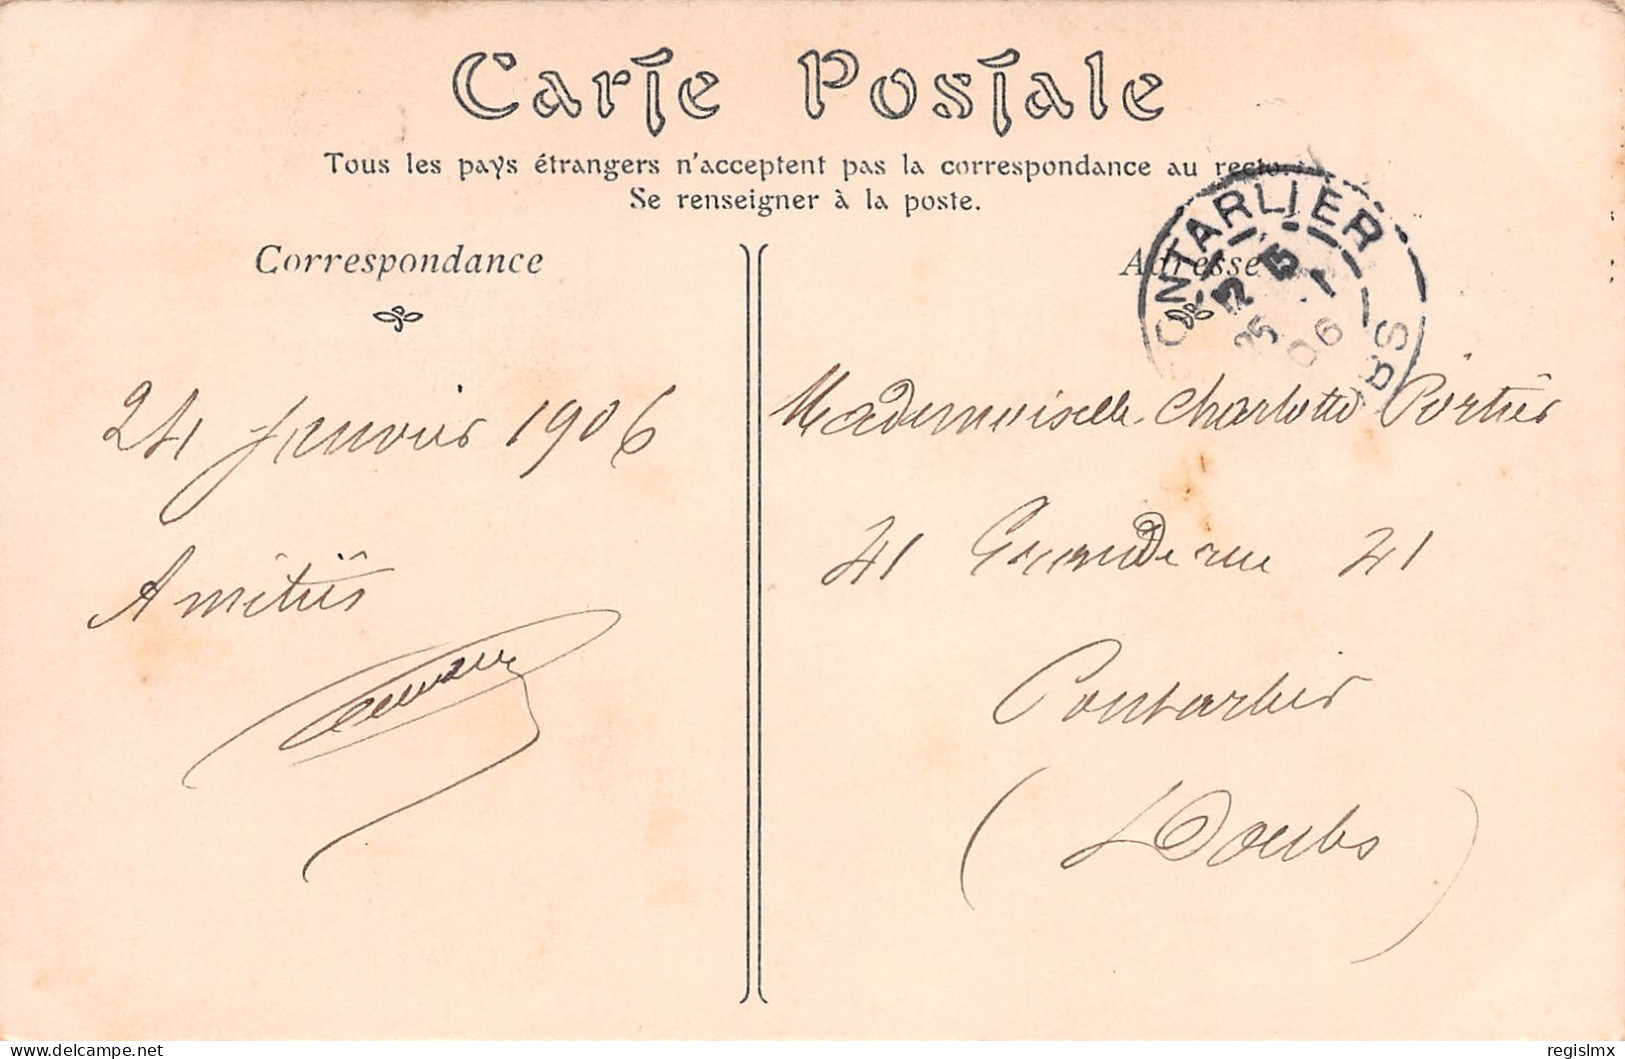 Carte Postale
Tous les pays étrangers n'acceptent pas la correspondance au recto.
Se renseigner à la poste.
Correspondance
Adresse
ONTARLIER
5
25 1
06
24 Janvier 1906
Amitiés
Mademoiselle Charlotte Portier
41 Grande rue 41
Pontarlier
(Doubs)
delcampe.net
regislmx